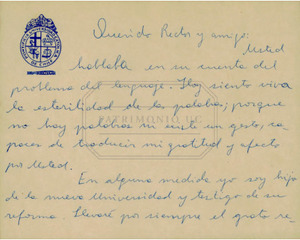 Querido Rector y amigo: Usted
hablaba en su cuenta del
problema del lenguaje. Hoy siento viva
la esterilidad de la palabra; porque
no hay palabras ni existe un gesto, ca
paces de traducir mi gratitud y afecto
por Usted.
En alguna medida yo soy hijo
de la nueva Universidad y testigo de su
reforma. Llevaré por siempre el grato re
PATRIMONIO UC